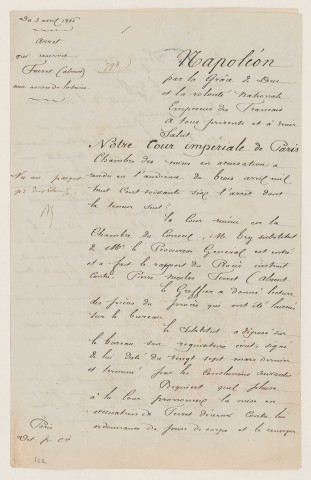 Du 3 avril 1866
Arrêt
qui renvoie
Ferret (absent)
aux assises de la Seine
Napoléon
par la Grâce de Dieu
et la volonté Nationale
Empereur des Français
A tous présents et à venir
Salut.
Notre Cour impériale de Paris
Chambre des mises en accusation a
rendu en l'audience du trois avril mil
huit Cent soixante six l'arrêt dont
la teneur suit:
Vu au parquet
La Cour réunie en la
Chambre du Conseil, M. substitut
de Mr le Procureur Général est entré
et a fait le rapport du Procès instruit
contre Pierre Ferret (absent
Le Greffier a donné lecture
des pièces du procès qui ont été laissées
sur le bureau.
Le Substitut a déposé sur
le bureau son réquisitoire écrit, signé
de lui daté du vingt sept mars dernier
et terminé par les Conclusions suivantes
Requiert qu'il plaise
à la Cour prononcer la mise en
accusation de Ferret décerner contre lui
ordonnance de prise de corps et le renvoyer
Paris
122